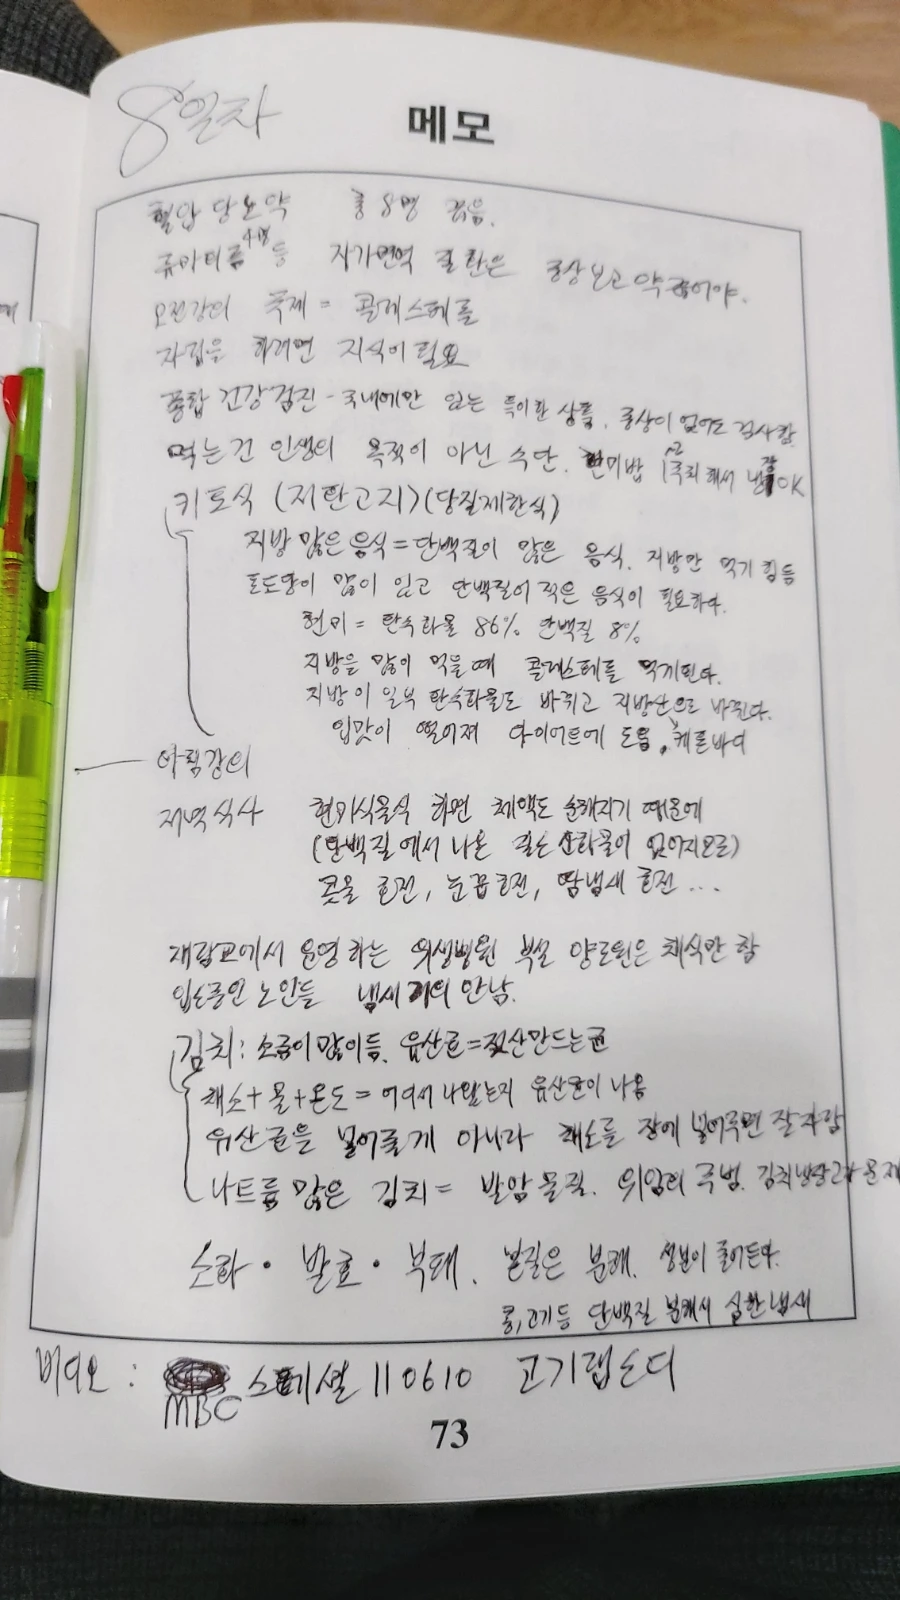 8일차
메모
혈압 당뇨약 총 8명 끊음.
류마티름 등 자가면역 질환은 증상보고 약끊어야.
오전강의 숙제 = 콜레스테롤
자립을 하려면 지식이 필요
종합 건강검진 - 국내에만 있는 특이한 상품. 증상이 없어도 검사함.
먹는건 인생의 목적이 아닌 수단. 현미밥 해서 냉장OK
키토식 (저탄고지)(당질제한식)
지방 많은 음식 = 단백질이 많은 음식. 지방만 먹기 힘듬
포도당이 많이 있고 단백질이 적은 음식이 필요하다.
현미 = 탄수화물 86% 단백질 8%
지방을 많이 먹을때 콜레스테롤 먹게된다.
지방이 일부 탄수화물로 바뀌고 지방산으로 바뀐다.
입맛이 떨어져 다이어트에 도움. 케톤바디
아침강의
저녁식사 현미식물식 하면 체액도 순해지기 때문에
(단백질에서 나온 질소산화물이 없어지므로)
콧물 호전, 눈꼽호전, 땀냄새 호전 ...
재림교에서 운영하는 위생병원 부설 양로원은 채식만 함
입소중인 노인들 냄새 거의 안남.
김치: 소금이 많이듬. 유산균=젖산만드는균
채소+물+온도 = 어디서 나왔는지 유산균이 나옴
유산균을 넣어줄게 아니라 채소를 장에 넣어주면 잘자람
나트륨 많은 김치 = 발암물질. 위암의 주범. 김치냉장고가
소화 · 발효 · 부패. 본질은 분해. 성분이 줄어든다.
콩, 고기등 단백질 분해시 심한냄새
비디오 : 스페셜 110610 고기랩소디
MBC
73